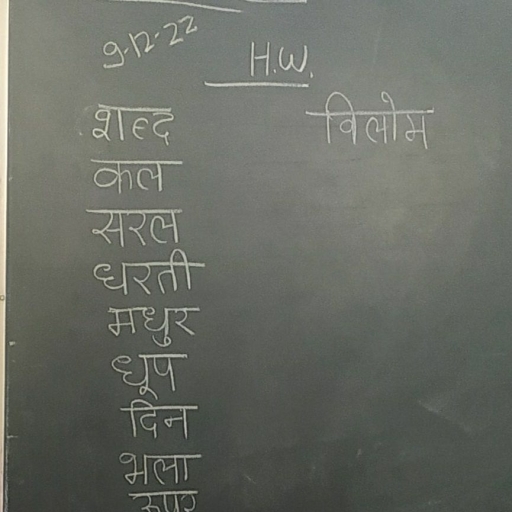 9-12-22
H.W.
शब्द विलोम
कल
सरल
धरती
मधुर
धूप
दिन
भला
ऊपर